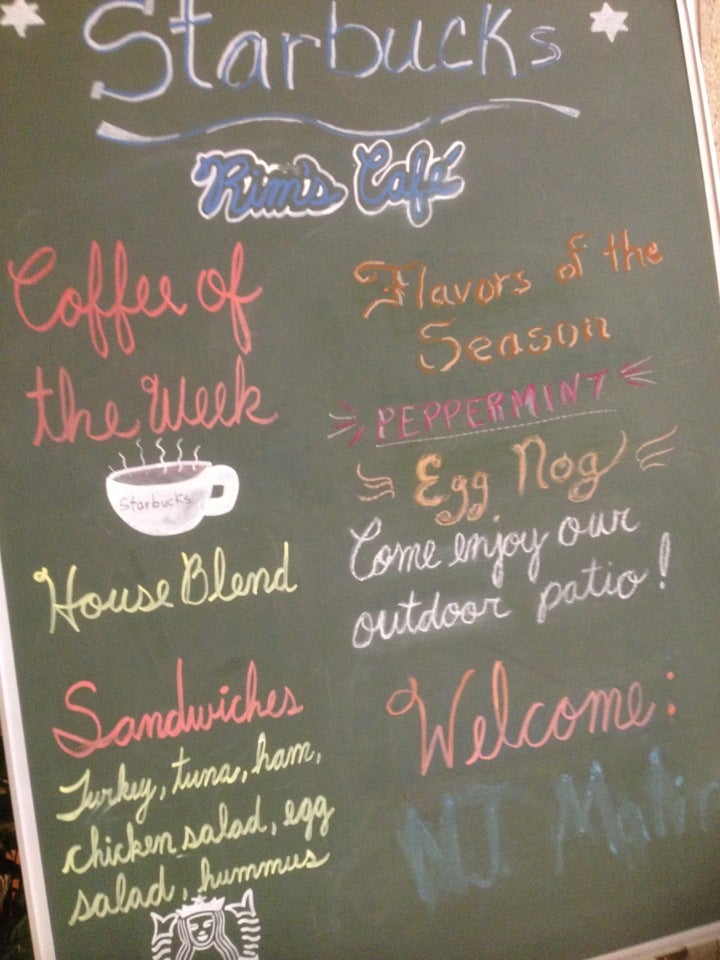 Starbucks
Kim's Café
Coffee of
the Week
Starbucks
House Blend
Sandwiches
Turkey, tuna, ham,
chicken salad, egg
salad, hummus
Flavors of the
Season
PEPPERMINT
Egg Nog
Come enjoy our
outdoor patio!
Welcome:
NJ